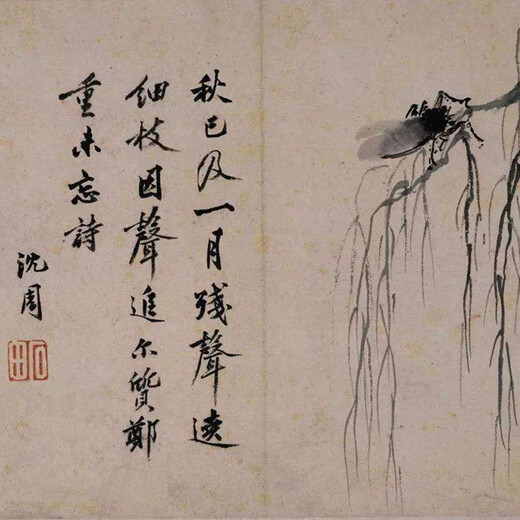 秋已及一月殘聲遶
細枝因聲追尔質鄭
重未忘詩
沈周
石田